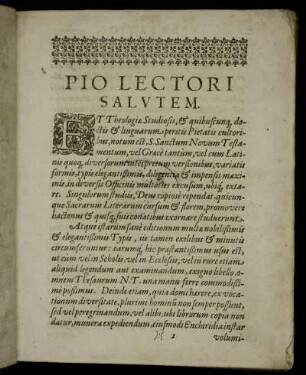 PIO LECTORI
SALVTEM.
ET Theologia Studiosis, & quibuscunq, do-
ctis & linguarum peritis Pietatis cultori-
bus, notum est, S. Sanctum Novum Testa-
mentum, vel Græce tantùm, vel cum Lati-
nis quoq, diversorum interpretum versionibus, variatis
formis, typis elegantissimis, diligentia & impensis maxi-
mis, in diversis Officinis multoties excusum, ubiq, exta-
re. Singulorum studia, Deus copiose rependat, quicun-
que Sacrarum Literarum cursum & florem, promovere
hactenus & quisq, suis conatibus exornare studuerunt.
Atque istarum sanè editionum multa nobilissimis
& elegantissimis Typis, in tamen exilibus & minutis
circumscriuntur: earumq, hic præstantissimus usus est,
ut cum vel in Scholis, vel in Ecclesiis, vel in rure etiam,
aliquid legendum aut examinandum, exiguo libello, o-
mnem Thesaurum N. T. unà manu ferre commodissi-
mè possimus. Deinde etiam, quia domi hærere, ex voca-
tionum diversitate, plurimi hominũ non semper possunt,
sed vel peregrinandum, vel alibi, ubi librorum copia non
datur, munera expediendum, eiusmodi Enchiridia instar
2
volumi-